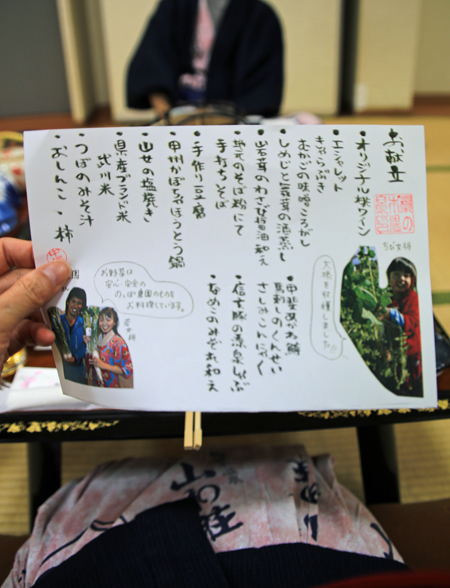 お献立
・オリジナル桃ワイン
・エシャレット
きゃらぶき
おかかの味噌ころがし
しめじと茸の酒蒸し
・岩茸のわさび醤油和え
・地元のそば粉にて
手打ちそば
・手作り豆腐
・甲州かぼちゃほうとう鍋
・山女の塩焼き
・県産ブランド米
武川米
・つぼのみそ汁
・おしんこ・柿
・甲斐あかね鱒
馬刺しのくんせい
さしみこんにゃく
・信玄豚の温泉しゃぶ
・なめこのみぞれ和え
大地を収穫しました!!
お野菜は
安心・安全の
のっぽ農園のものを
お料理しています。